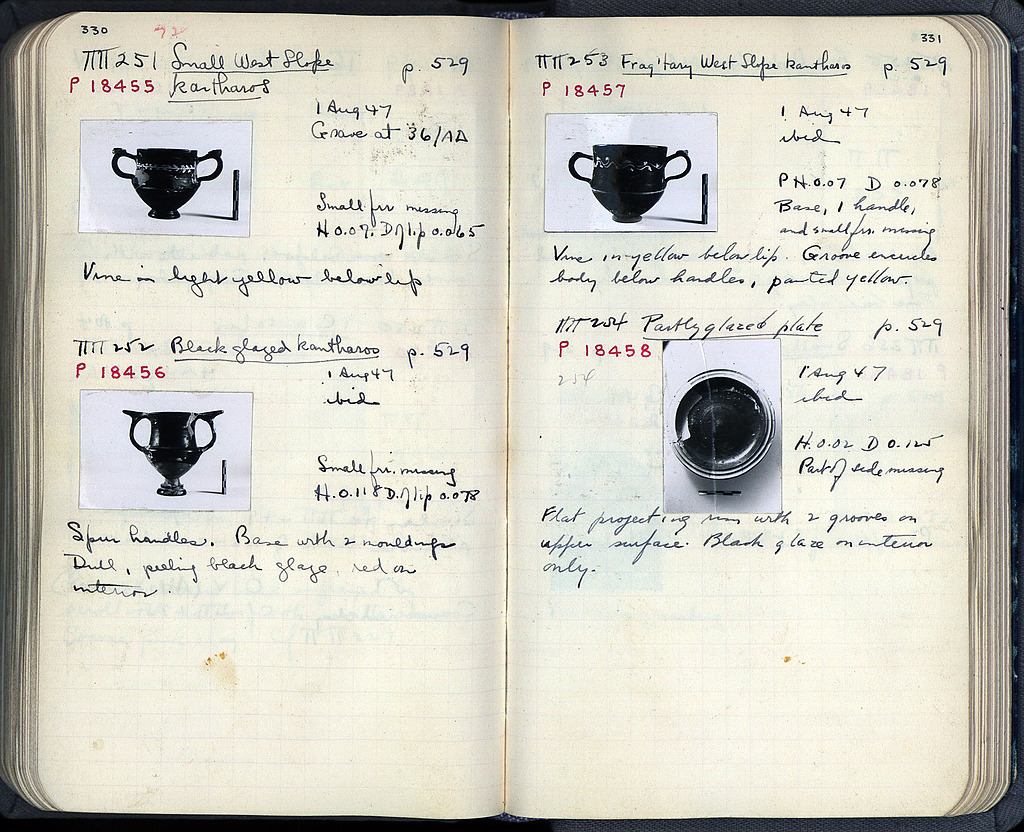 330
ΠΠ 251 Small West Slope
kantharos
p. 529
P 18455
1 Aug 47
Grave at 36/ΛΔ
Small frr missing
H. 0.07. D of lip 0.065
Vine in light yellow below lip
ΠΠ 252 Black glazed kantharos p. 529
P 18456
1 Aug 47
ibid
Small frr. missing
H. 0.118 D. of lip 0.078
Spur handles. Base with 2 mouldings
Dull, peeling black glaze, red on
interior
331
ΠΠ 253 Frag'tary West Slope kantharos p. 529
P 18457
1 Aug 47
ibid
P H. 0.07 D 0.078
Base, 1 handle,
and small frr. missing
Vine in yellow below lip. Groove encircles
body below handles, painted yellow.
ΠΠ 254 Partly glazed plate p. 529
P 18458
254
1 Aug 47
ibid
H. 0.02 D 0.125
Part of side missing
Flat projecting rim with 2 grooves on
upper surface. Black glaze on interior
only.